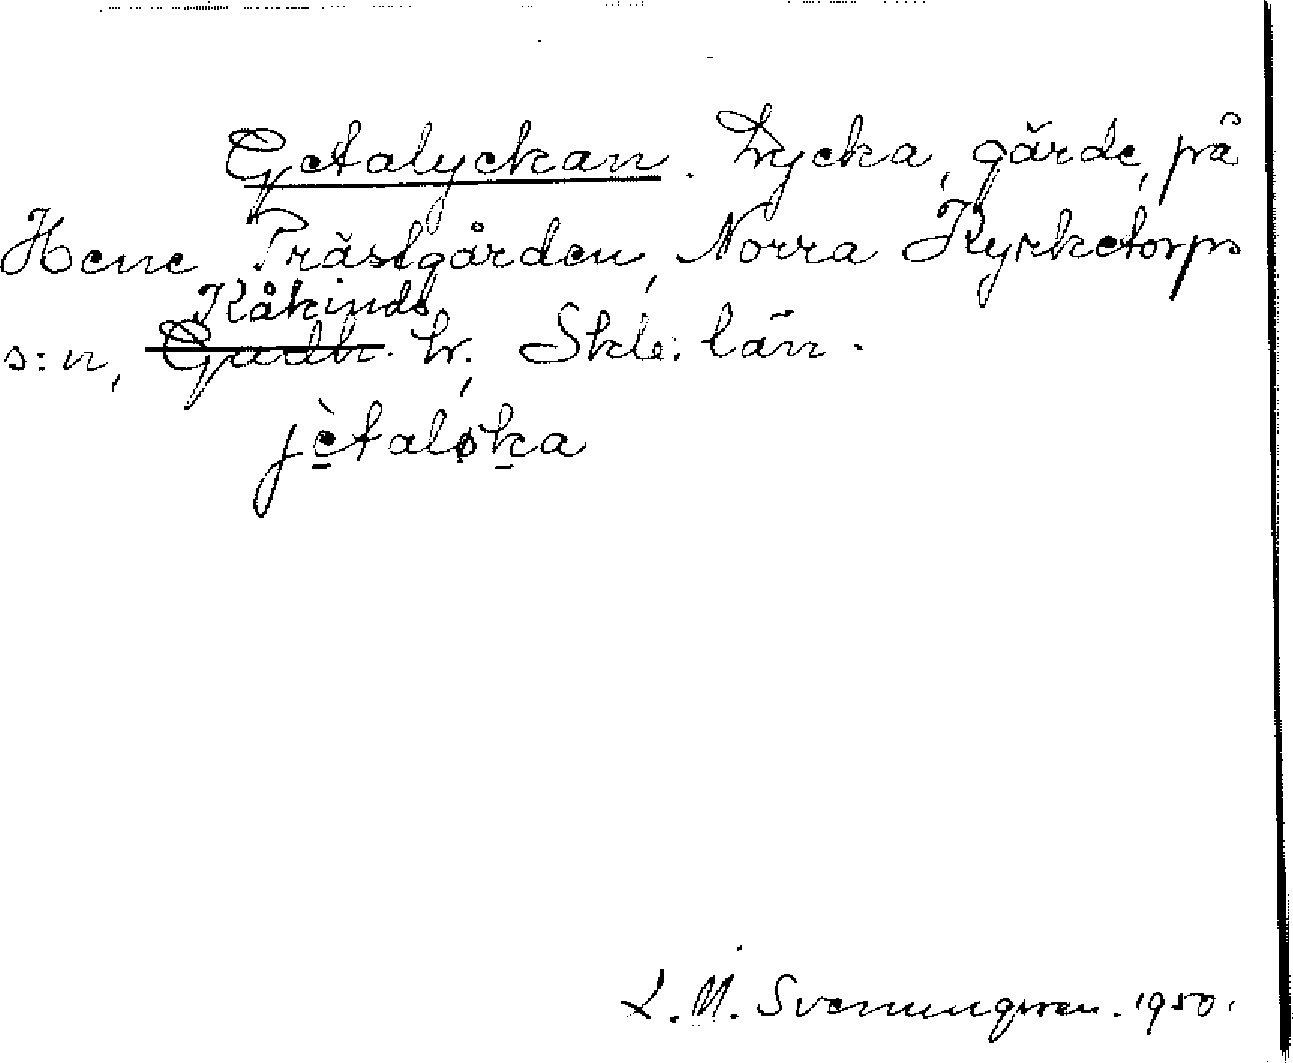 Getalyckan. Lycka, gärde, på
Hene Prästgården, Norra Kyrketorps
Kåkinds
s:n, Gudh. hr. Skb. län.
jètaløka
L. M. Svenungsson. 1950.